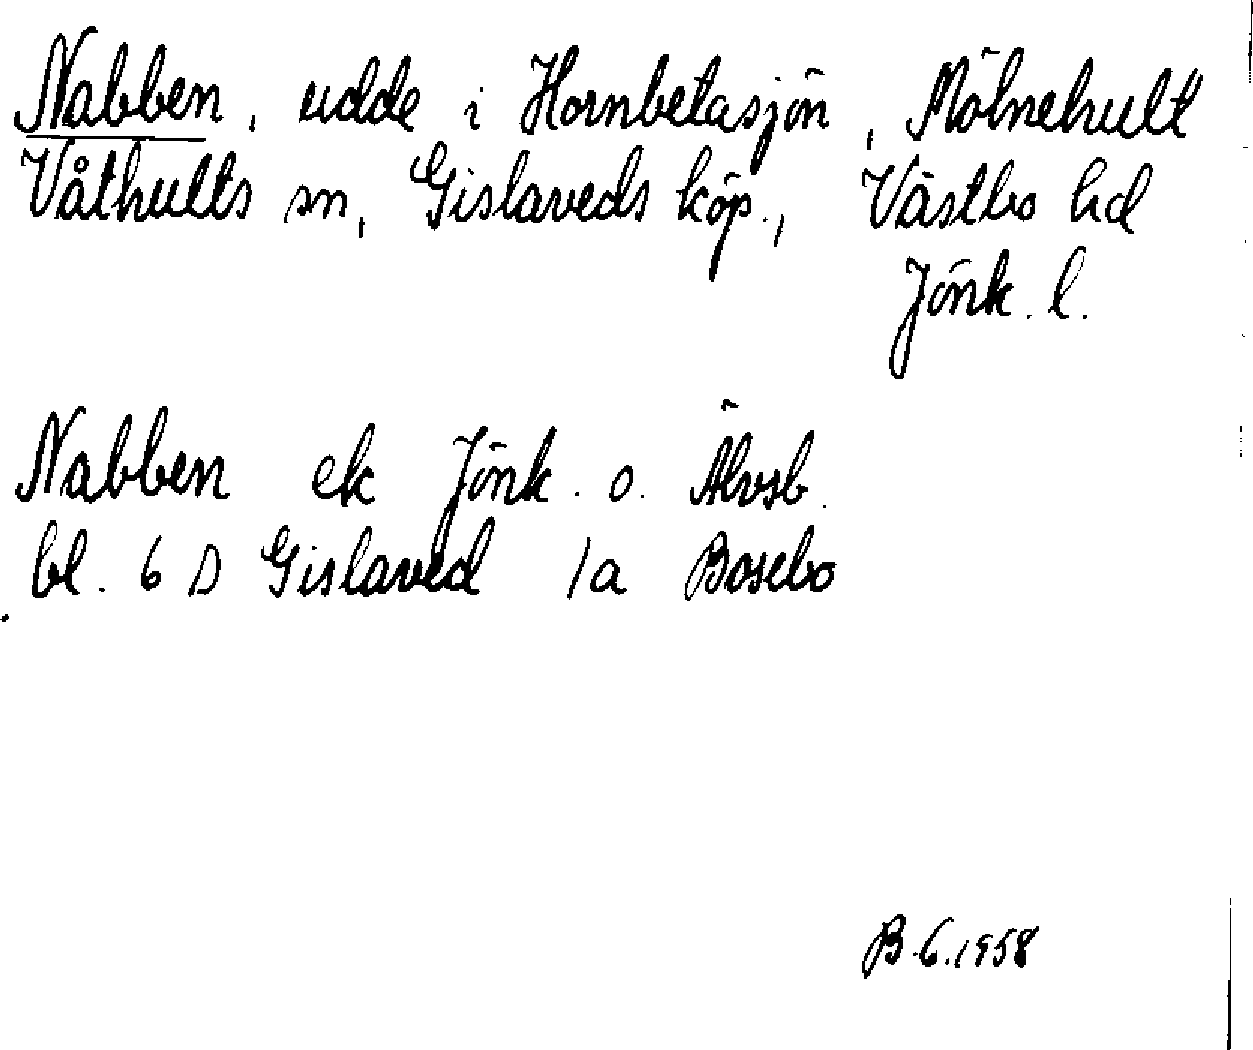 Nabben, udde i Hornbetasjön, Mölnehult
Våthults sn, Gislaveds köp., Västbo hd
Jönk. l.
Nabben ek Jönk. o. Älvsb.
bl. 6 D Gislaved 1a Bosebo
B.6.1958